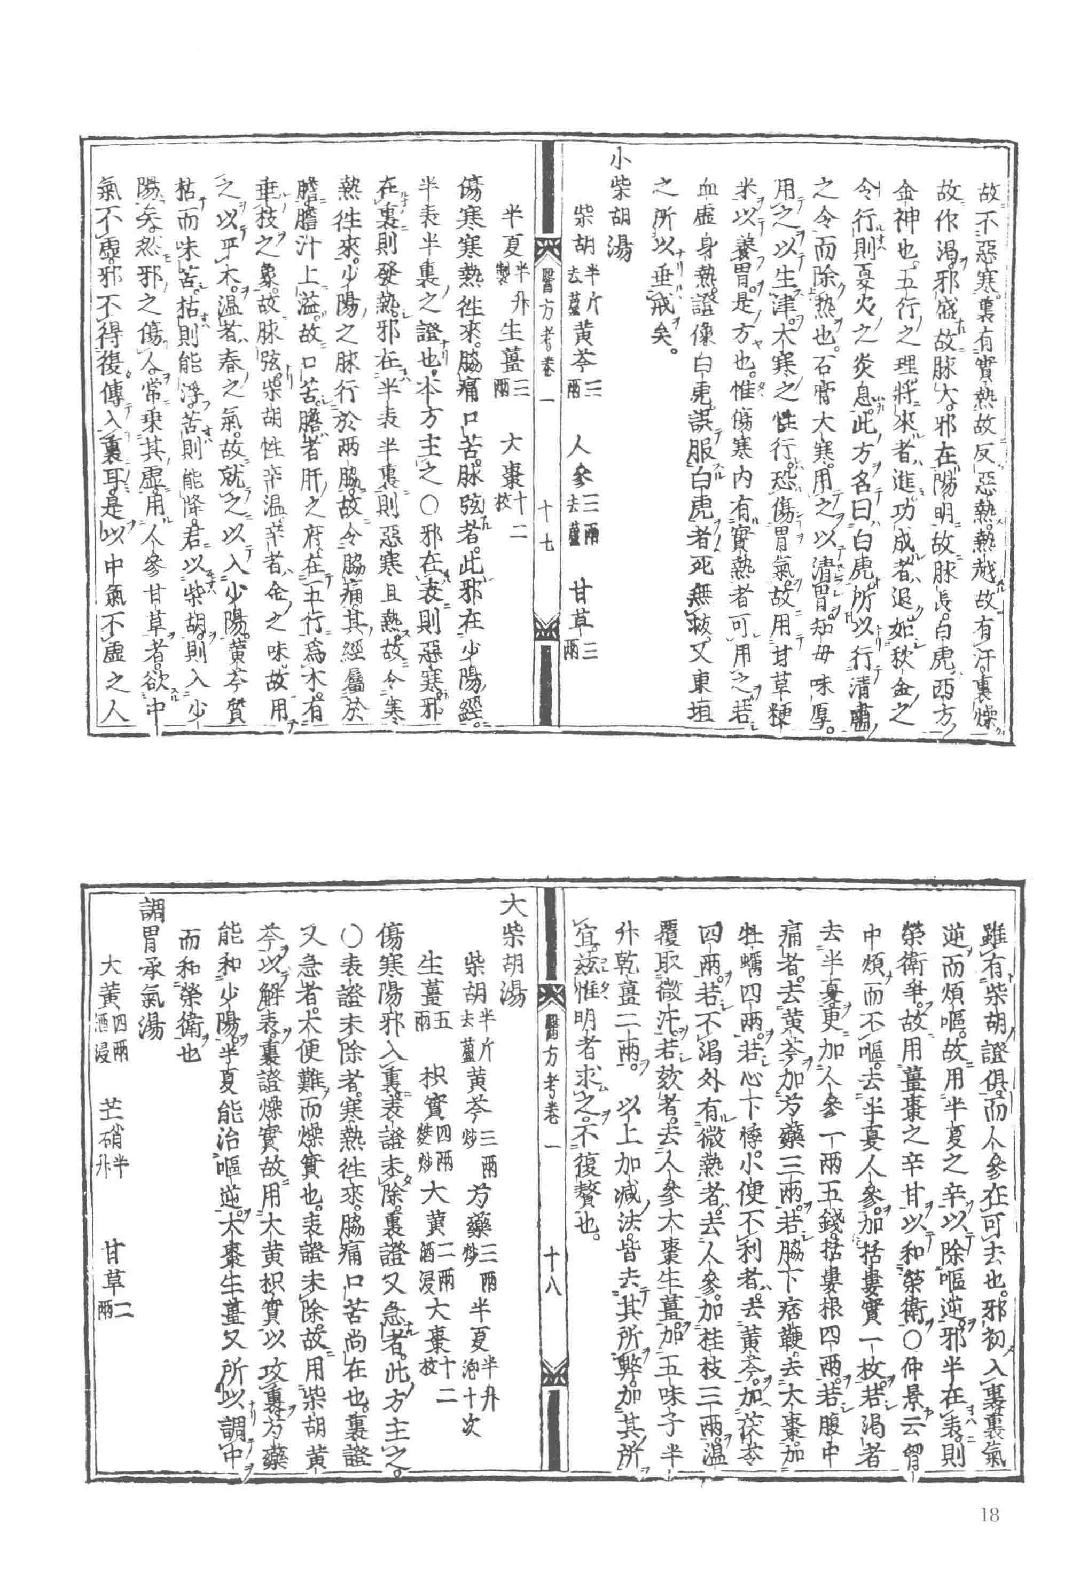 故不惡寒裏有實熱故反惡熱熱越故有汗裏燥
故作渴邪盛故脉大邪在陽明故脉長白虎西方
金神也五行之理將來者進功成者退如秋金之
令行則夏火之炎息此方名曰白虎所以行清肅
之令而除熱也石膏大寒用之以清胃知母味厚
用之以生津大寒之性行恐傷胃氣故用甘草粳
米以養胃是方也惟傷寒内有實熱者可用之若
血虛身熱證像白虎誤服白虎者死無救又東垣
之所以垂戒矣。
小柴胡湯
柴胡半斤去蘆 黄芩三兩 人參三兩去蘆 甘草三兩
醫方考卷一 十七
半夏半升製 生薑三兩 大棗十二枚
傷寒寒熱徃來脇痛口苦脉弦者此邪在少陽經
半表半裏之證也本方主之〇邪在表則惡寒邪
在裏則發熱邪在半表半裏則惡寒且熱故令寒
熱徃來少陽之脉行於兩脇故令脇痛其經屬於
膽膽汁上溢故口苦膽者肝之府在五行爲木有
垂枝之象故脉弦柴胡性辛温辛者金之味故用
之以平木温者春之氣故就之以入少陽黄芩質
枯而味苦枯則能浮苦則能降君以柴胡則入少
陽矣然邪之傷人常乘其虛用人參甘草者欲中
氣不虛邪不得復傳入裏耳是以中氣不虛之人
雖有柴胡證俱而人參在可去也邪初入裏裏氣
逆而煩嘔故用半夏之辛以除嘔逆邪半在表則
榮衛爭故用薑棗之辛甘以和榮衛〇仲景云胷
中煩而不嘔去半夏人參加括蔞實一枚若渴者
去半夏更加人參一兩五錢括蔞根四兩若腹中
痛者去黄芩加芍藥三兩若脇下痞鞕去大棗加
牡蠣四兩若心下悸小便不利者去黄芩加茯苓
四兩若不渴外有微熱者去人參加桂枝三兩温
覆取微汗若欬者去人參大棗生薑加五味子半
升乾薑二兩 以上加減法皆去其所弊加其所
宜玆惟明者求之不復贅也。
醫方考卷一 十八
大柴胡湯
柴胡半斤去蘆 黄芩三兩炒 芍藥三兩炒 半夏半升泡十次
生薑五兩 枳實四兩麩炒 大黄二兩酒浸 大棗十二枚
傷寒陽邪入裏表證未除裏證又急者此方主之。
〇表證未除者寒熱徃來脇痛口苦尚在也裏證
又急者大便難而燥實也表證未除故用柴胡黄
芩以解表裏證燥實故用大黄枳實以攻裏芍藥
能和少陽半夏能治嘔逆大棗生薑又所以調中
而和榮衛也
調胃承氣湯
大黄四兩酒浸 芒硝半升 甘草二兩
18